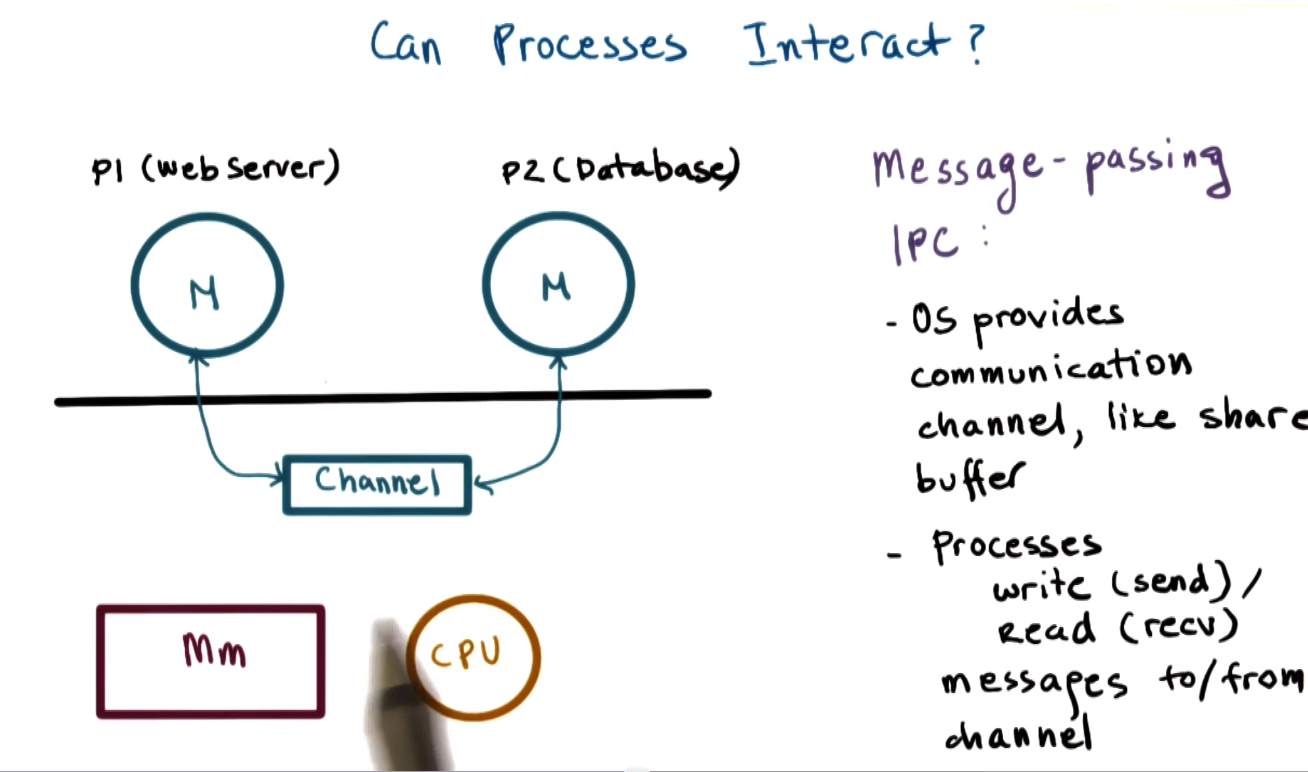 Can Processes Interact?
P1 (web server)
P2 (Database)
M
M
Channel
Mm
CPU
Message-passing
IPC:
- OS provides
communication
channel, like share
buffer
- Processes
write (send) /
Read (recv)
messages to/from
channel